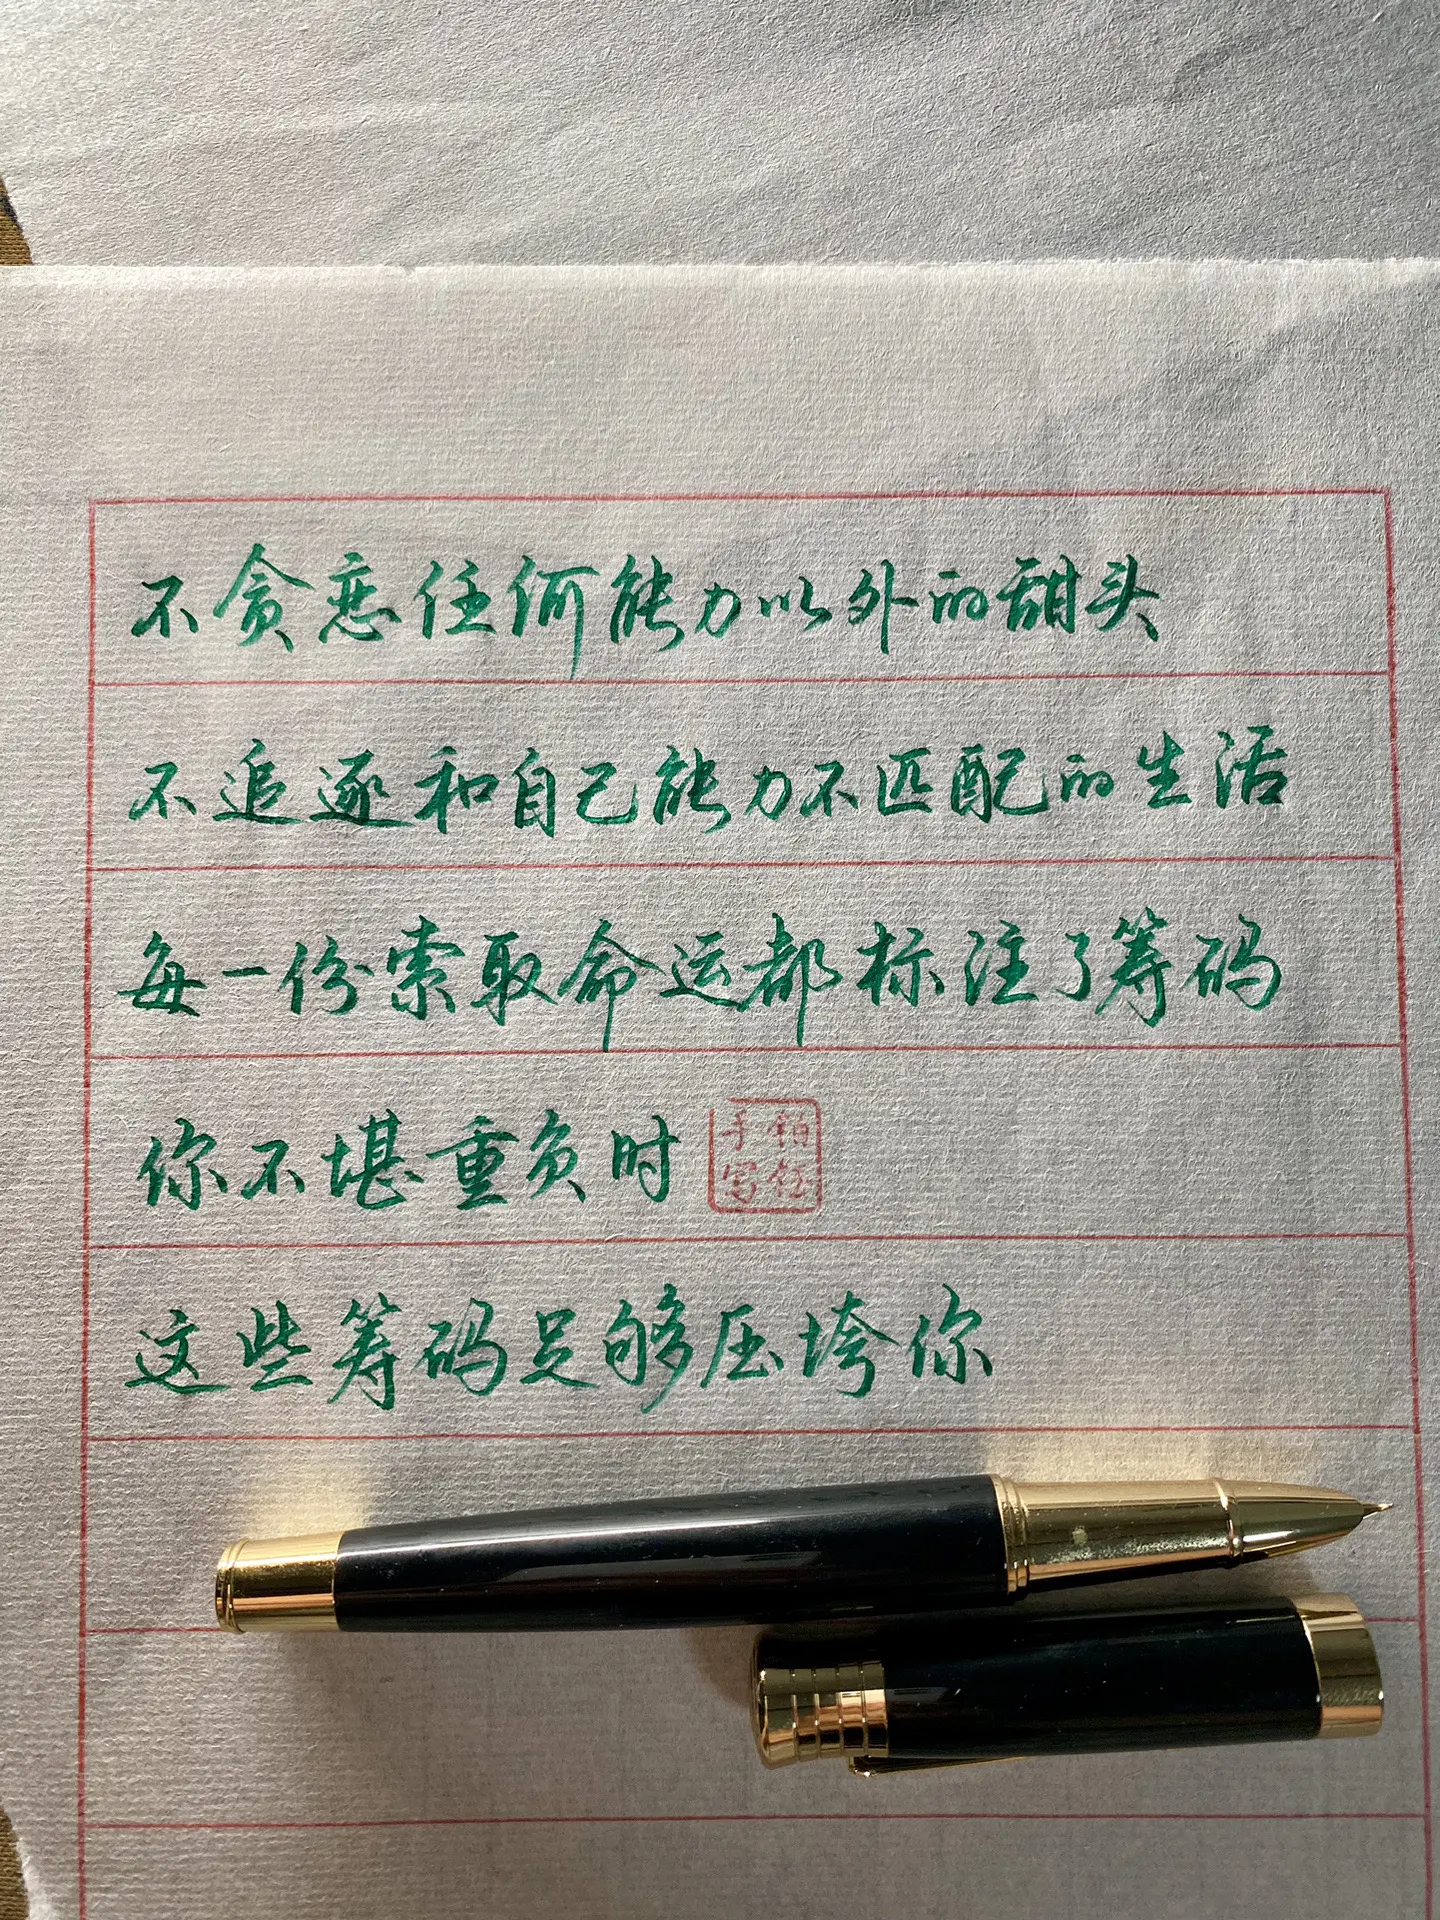 不贪恋任何能力以外的甜头
不追逐和自己能力不匹配的生活
每一份索取命运都标注了筹码
你不堪重负时
手写
这些筹码足够压垮你